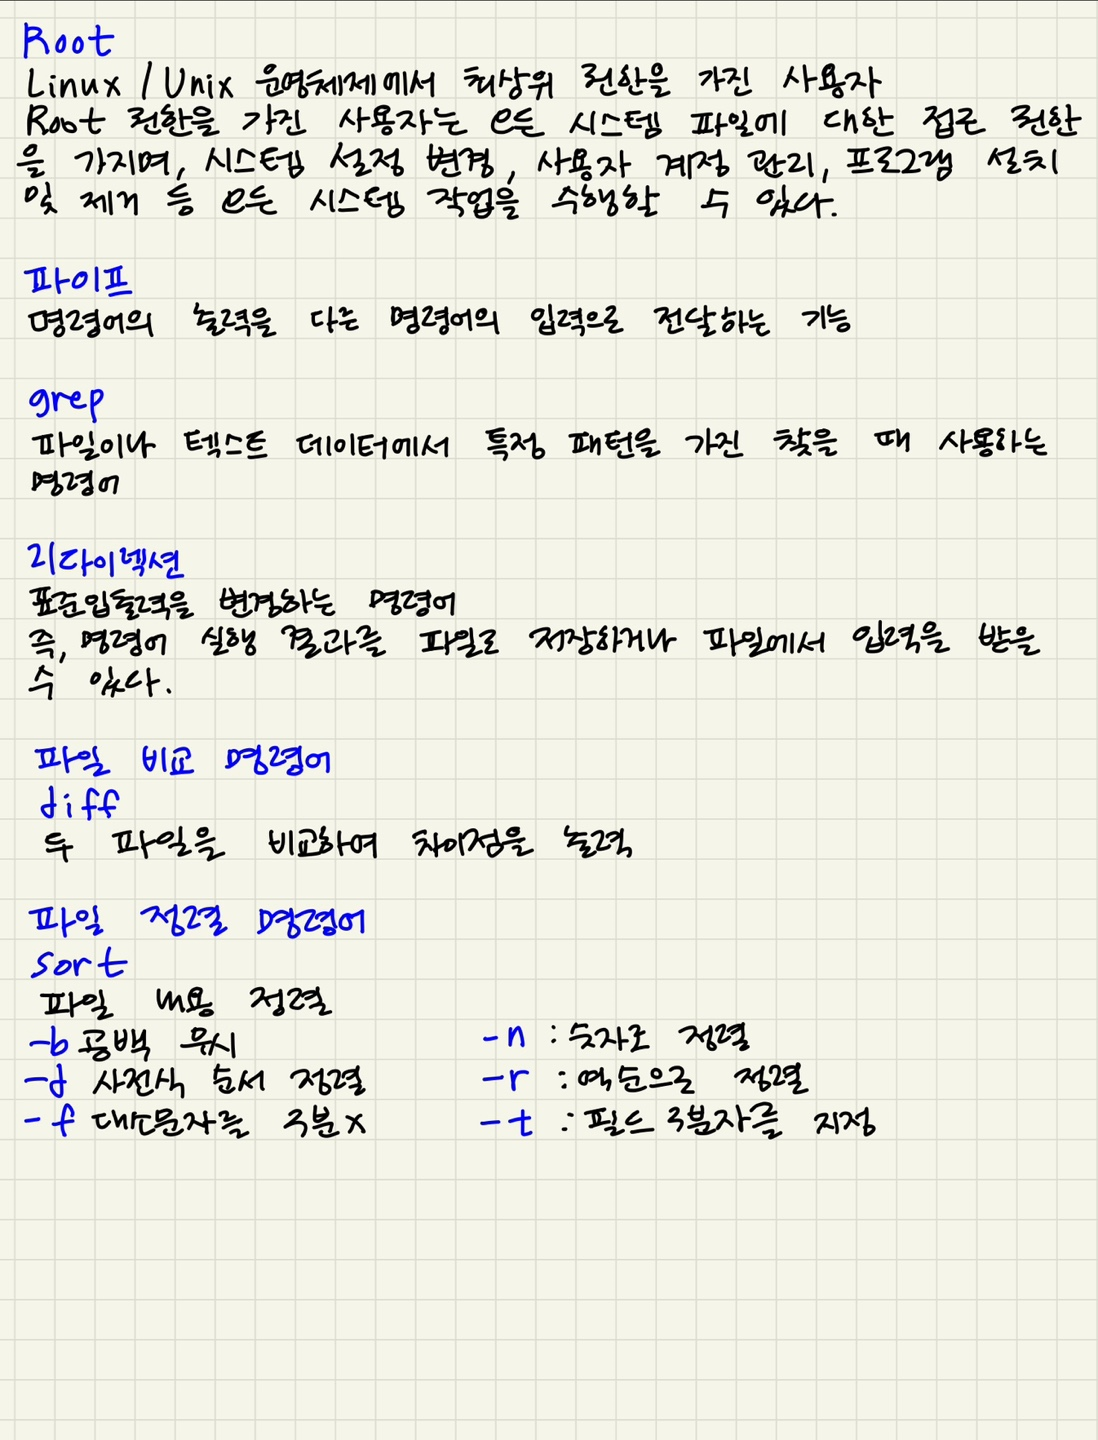 Root
Linux / Unix 운영체제에서 최상위 권한을 가진 사용자
Root 권한을 가진 사용자는 모든 시스템 파일에 대한 접근 권한
을 가지며, 시스템 설정 변경, 사용자 계정 관리, 프로그램 설치
및 제거 등 모든 시스템 작업을 수행할 수 있다.
파이프
명령어의 출력을 다른 명령어의 입력으로 전달하는 기능
grep
파일이나 텍스트 데이터에서 특정 패턴을 가진 찾을 때 사용하는
명령어
리다이렉션
표준입출력을 변경하는 명령어
즉, 명령어 실행 결과를 파일로 저장하거나 파일에서 입력을 받을
수 있다.
파일 비교 명령어
diff
두 파일을 비교하여 차이점을 출력
파일 정렬 명령어
sort
파일 내용 정렬
-b 공백 무시 -n : 숫자로 정렬
-d 사전식 순서 정렬 -r : 역순으로 정렬
-f 대소문자를 구분x -t : 필드 구분자를 지정